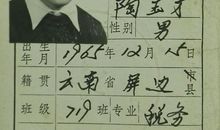 陶玉才
性别 男
出生年月 1965年12月15日
籍贯 云南省屏边县
班级 719班专业 税务